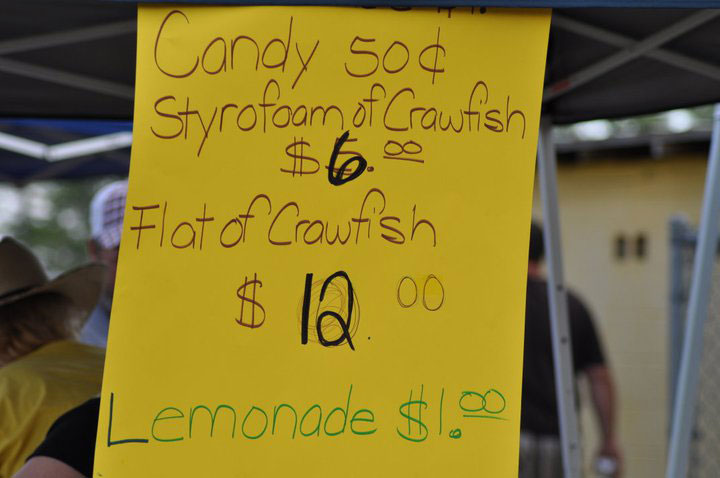 Candy 50¢
Styrofoam of Crawfish
$6.00
Flat of Crawfish
$12.00
Lemonade $1.00